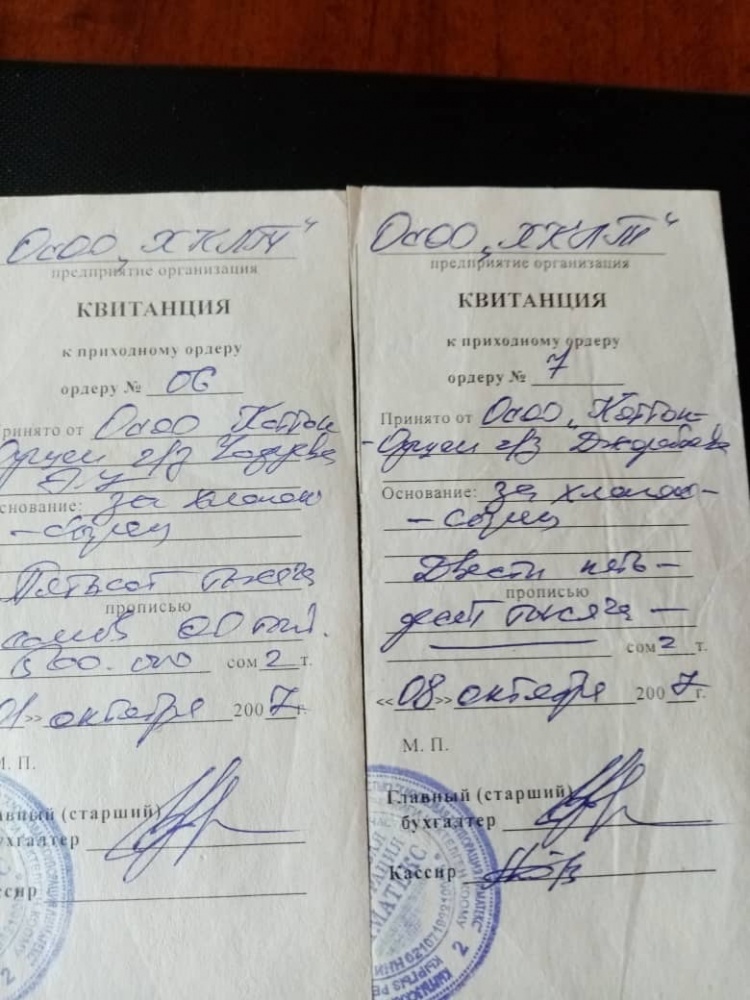 ОсОО „ХКЛТ"
предприятие организация
КВИТАНЦИЯ
к приходному ордеру
ордеру № 06
ринято от ОсОО Коттон
снование: за хлопок
- сырец
Пятьсот тысяча
прописью
сомов 00 тый.
500.000 сом 2 т.
01» октября 2007 г.
М. П.
авный (старший)
ухгалтер
ссир
2
ОсОО „ХКЛТ"
предприятие организация
КВИТАНЦИЯ
к приходному ордеру
ордеру № 7
Принято от ОсОО „Коттон-
Основание: за хлопок-
- сырец
Двести пять-
прописью
десят тысяча —
сом 2 т.
«08» октября 2007 г.
М. П.
Главный (старший)
бухгалтер
Кассир
2